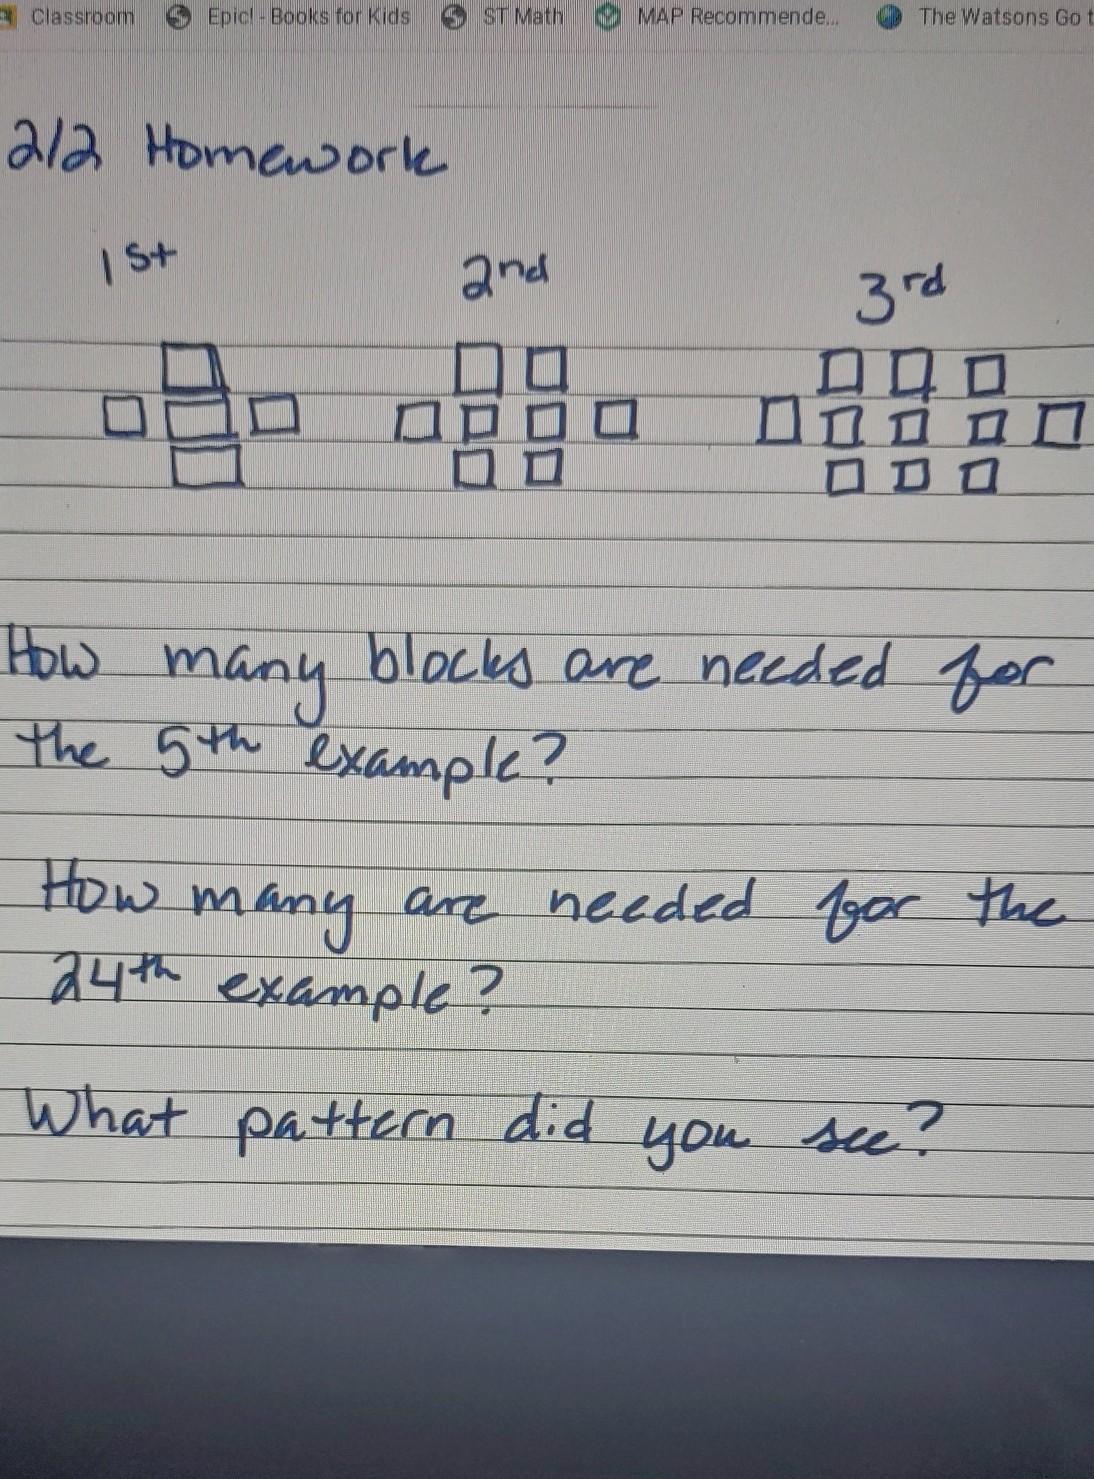 Classroom Epic! - Books for Kids ST Math MAP Recommende... The Watsons Go t
2/2 Homework
1st 2nd 3rd
How many blocks are needed for
the 5th example?
How many are needed for the
24th example?
What pattern did you see?